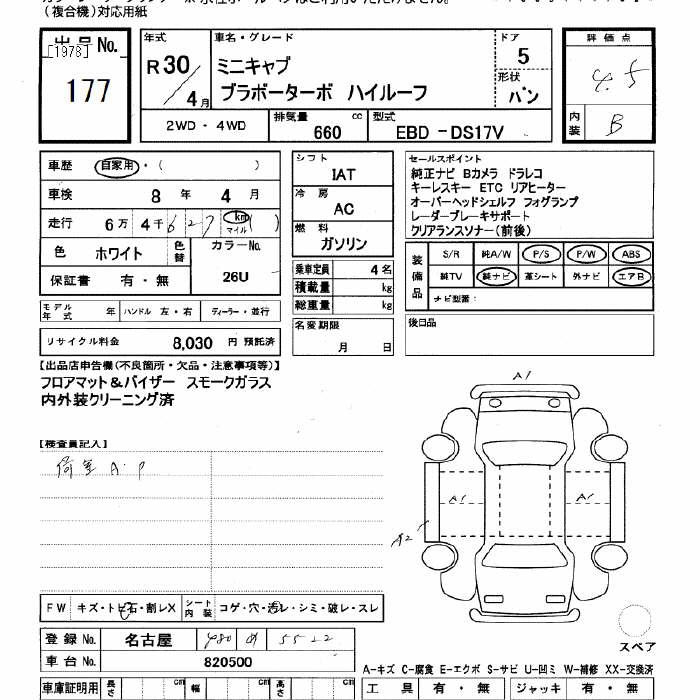 (複合機)対応用紙
出品 No.
[1978]
177
年式
R 30 / 4 月
車名・グレード
ミニキャブ
ブラボーターボ ハイルーフ
ドア
5
形状
バン
評価点
4.5
内装
B
2WD ・ 4WD
排気量
660 cc
型式
EBD -DS17V
車歴 自家用・( )
車検 8 年 4 月
走行 6 万 4 千 6 2 7 km マイル ( )
色 ホワイト 色替
カラーNo.
26U
保証書 有 ・ 無
モデル年式 年 ハンドル 左・右 ディーラー・並行
リサイクル料金 8,030 円 預託済
シフト
IAT
冷房
AC
燃料
ガソリン
乗車定員 4 名
積載量 kg
総重量 kg
名変期限
月 日
セールスポイント
純正ナビ Bカメラ ドラレコ
キーレスキー ETC リアヒーター
オーバーヘッドシェルフ フォグランプ
レーダーブレーキサポート
クリアランスソナー(前後)
装備品
S/R 純A/W P/S P/W ABS
純TV 純ナビ 革シート 外ナビ エアB
ナビ型番:
後日品
【出品店申告欄(不良箇所・欠品・注意事項等)】
フロアマット&バイザー スモークガラス
内外装クリーニング済
【検査員記入】
荷室 A・P
A1
A1
A1
A2
FW キズ・トビ石・割レX シート内装 コゲ・穴・汚レ・シミ・破レ・スレ
登録 No. 名古屋 480 55-22
車台 No. 820500
スペア
A-キズ C-腐食 E-エクボ S-サビ U-凹ミ W-補修 XX-交換済
車庫証明用 長さ cm 幅 cm 高さ cm
工具 有 ・ 無 ジャッキ 有 ・ 無